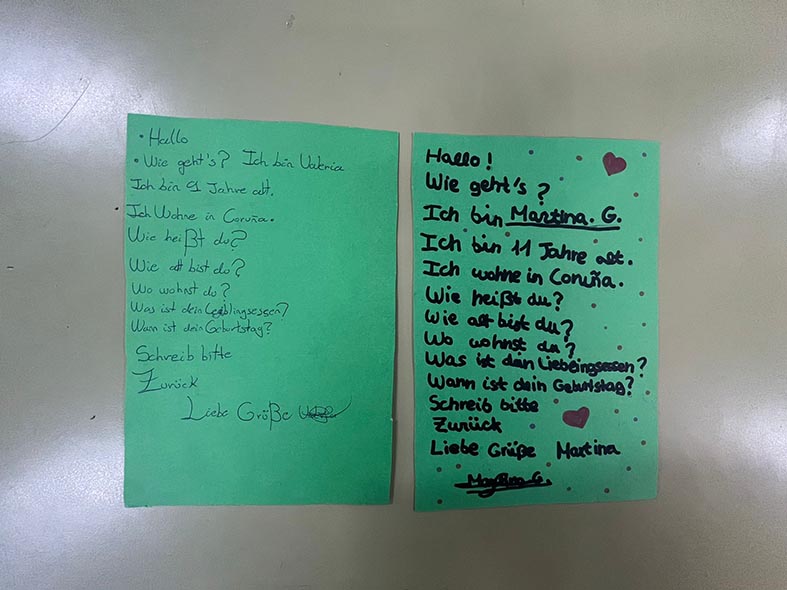 • Hallo
• Wie geht's? Ich bin Valeria
Ich bin 9 Jahre alt.
Ich Wohne in Coruña.
Wie heißt du?
Wie alt bist du?
Wo wohnst du?
Was ist dein Lieblingsessen?
Wann ist dein Geburtstag?
Schreib bitte
Zurück
Liebe Grüße
Hallo!
Wie geht's?
Ich bin Martina. G.
Ich bin 11 Jahre alt.
Ich wohne in Coruña.
Wie heißt du?
Wie alt bist du?
Wo wohnst du?
Was ist dein Liebeingsessen?
Wann ist dein Geburtstag?
Schreib bitte
Zurück
Liebe Grüße Martina
Martina G.